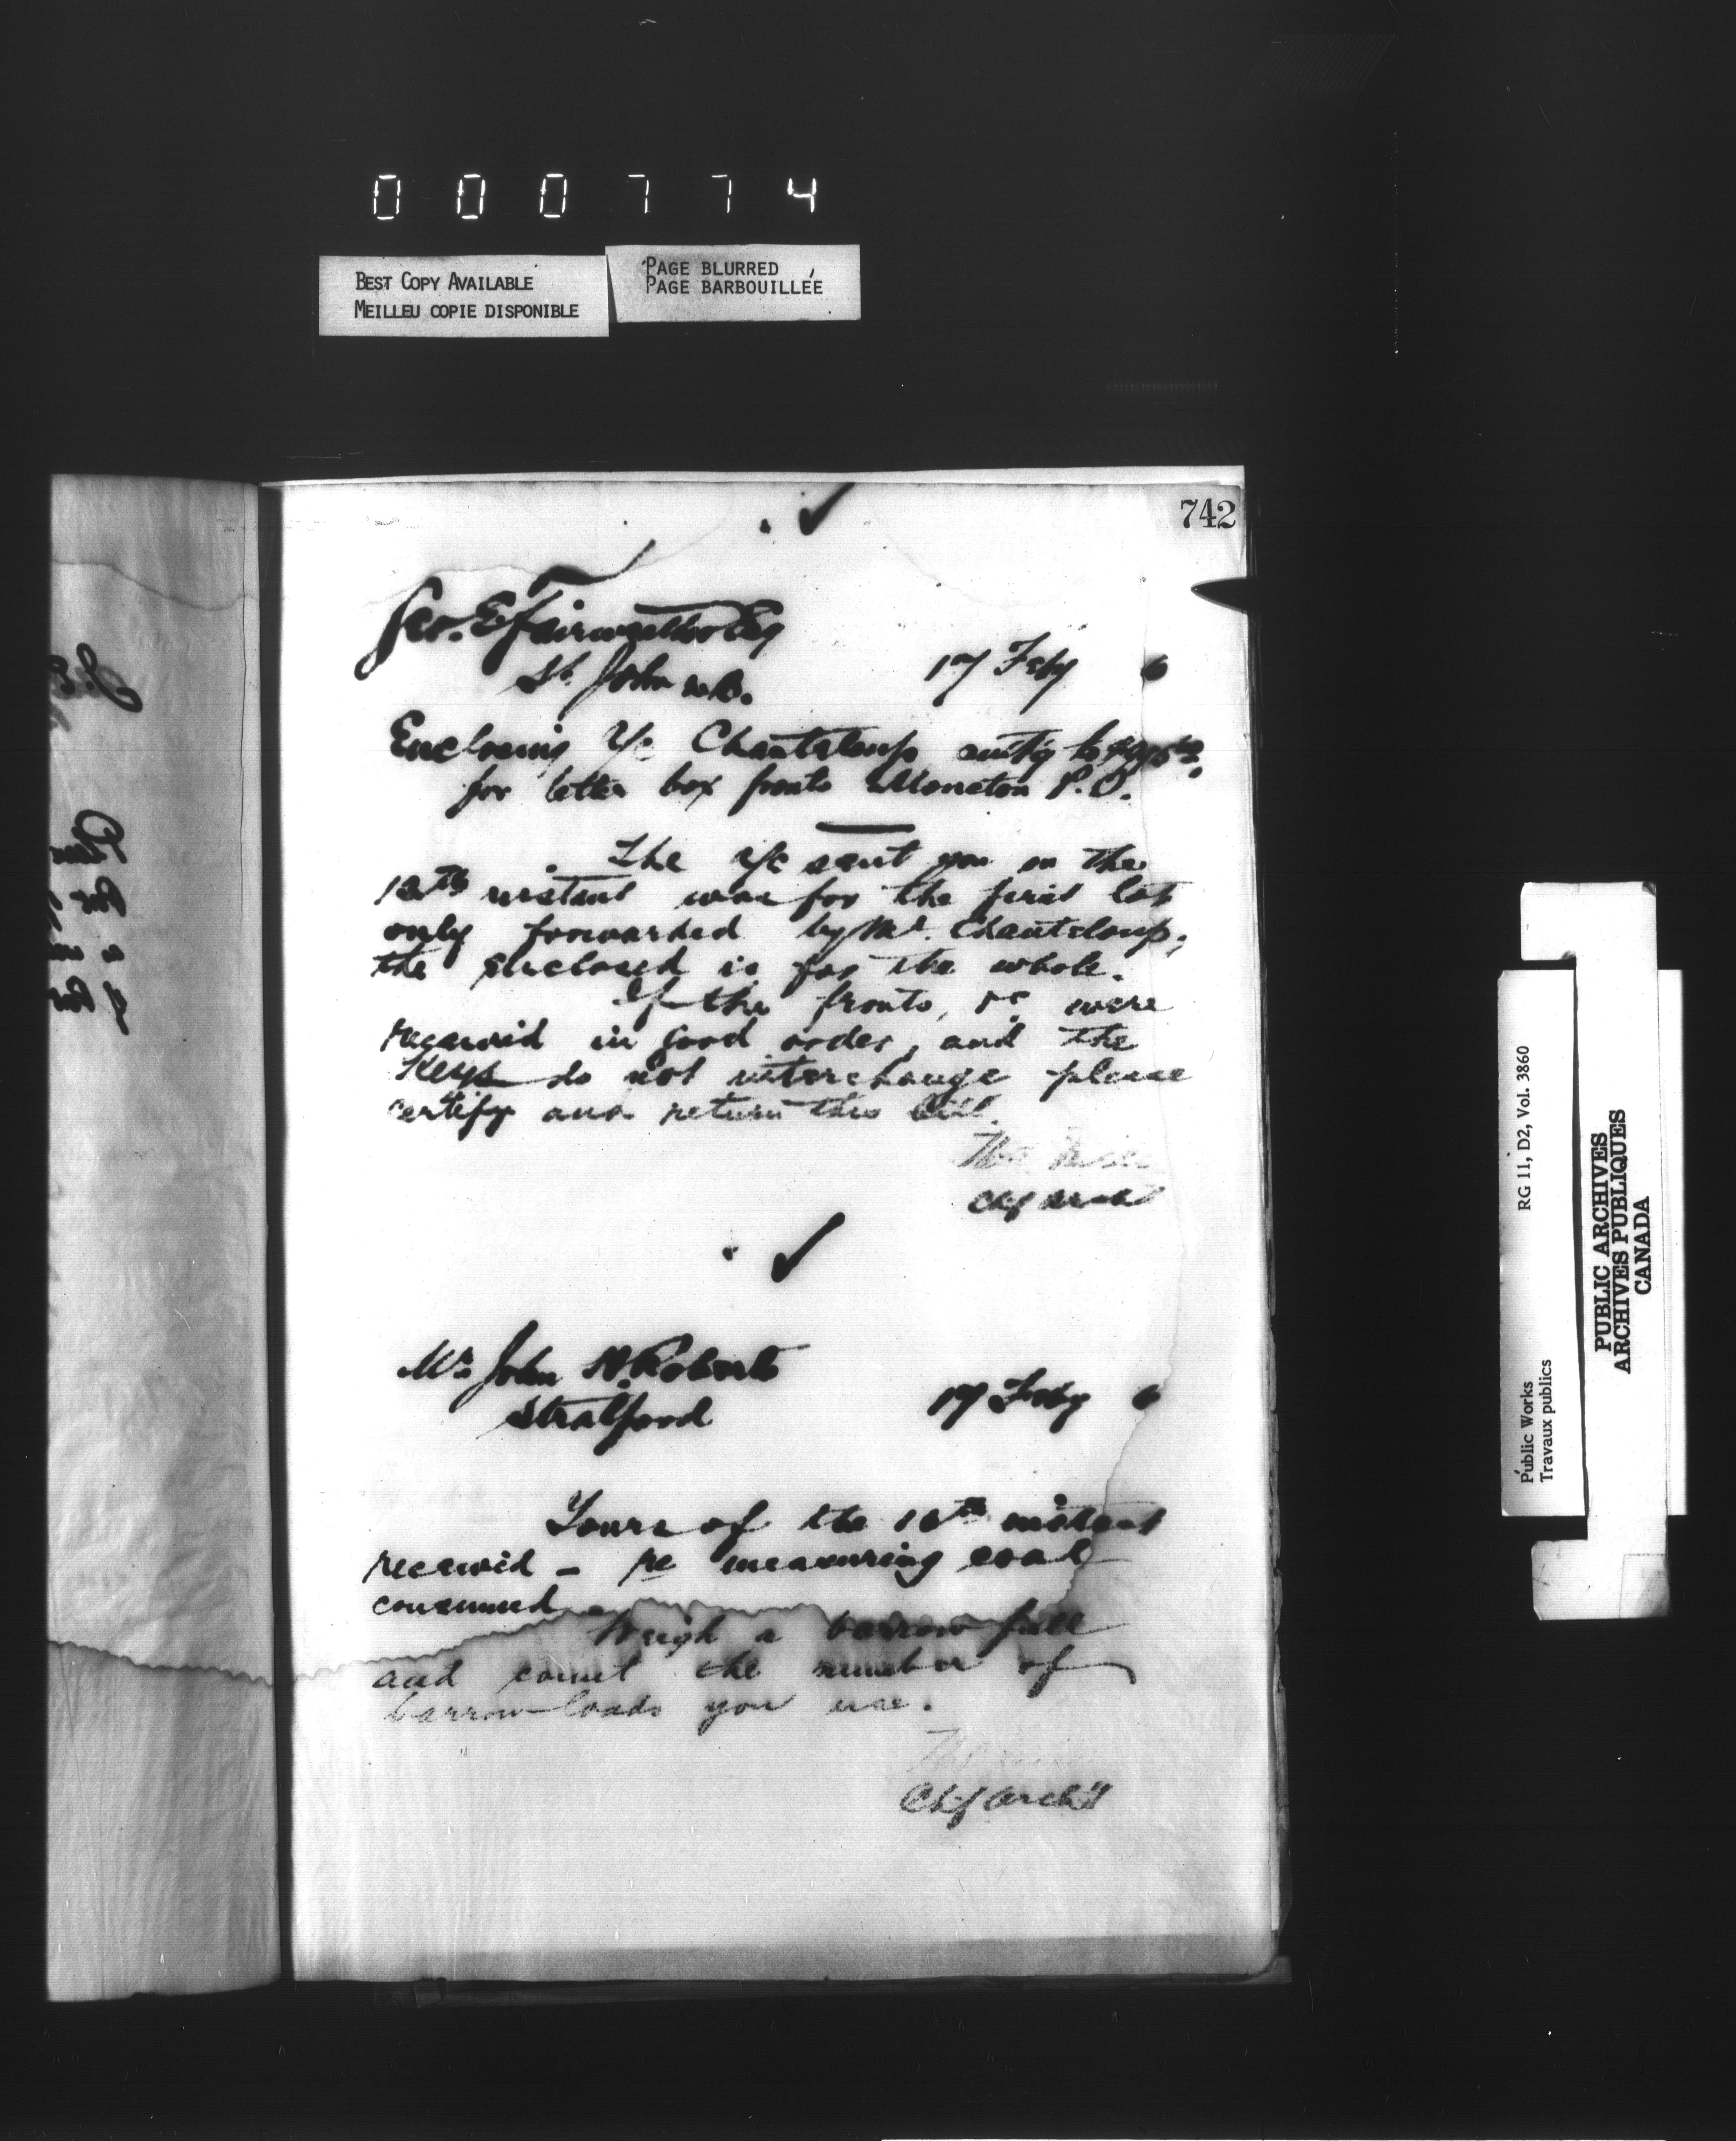 000774
BEST COPY AVAILABLE
MEILLEU COPIE DISPONIBLE
PAGE BLURRED
PAGE BARBOUILLÉE
742
Geo. E. Fairweather Esq
St. John N.B.
17 Feby 6
Enclosing a/c Chanteloup amt'g to
for letter box fronts Moncton P.O.
The a/c sent you on the
12th instant was for the first lot
only forwarded by Mr. Chanteloup,
the enclosed is for the whole.
If the fronts, &c were
received in good order, and the
Keys do not interchange please
certify and return this bill.
Chf Arch't
Mr John H. Roberts
Stratford
17 Feby 6
Yours of the 16th instant
received - re measuring coal
consumed
Weigh a barrow full
and count the number of
barrow-loads you use.
Chf Arch't
RG 11, D2, Vol. 3860
Public Works
Travaux publics
PUBLIC ARCHIVES
ARCHIVES PUBLIQUES
CANADA